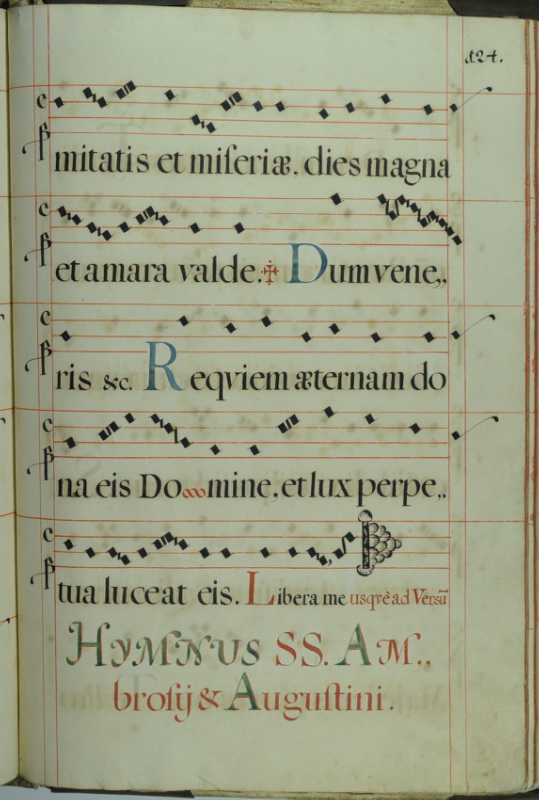 124.
mitatis et miſeriæ. dies magna
et amara valde.✠ Dum vene,.
ris &c. Reqviem æternam do
na eis Domine, et lux perpe,.
tua luceat eis. Libera me usqvè ad Versũ
HYMNUS SS. AM.,
broſij & Auguſtini.